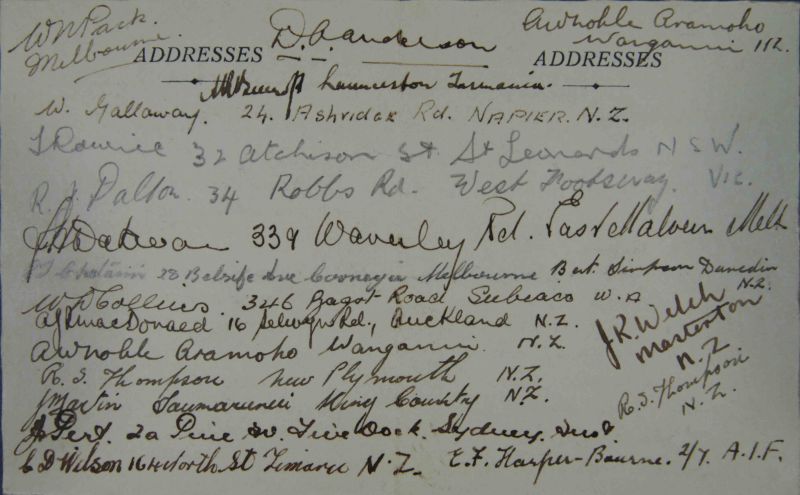 W N Pack.
Melbourne.
D. A. Anderson
A W Noble Aramoho
Wanganui NZ.
ADDRESSES ADDRESSES
Launceston Tasmania.
W. Gallaway. 24. Ashridge Rd. NAPIER. N.Z.
32 Atchison St. St Leonards N S W.
R. J. Dalton. 34 Robbs Rd. West Footscray. Vic.
339 Waverley Rd. East Malvern Melb
Ave Melbourne Bert. Simpson Dunedin N.Z.
W. D. Collins. 346 Bagot Road Subiaco W.A
A J MacDonald 16 Selwyn Rd., Auckland N.Z.
J.R. WELCH
Masterton
N.Z
A W Noble Aramoho Wanganui. N.Z.
R. S. Thompson New Plymouth N.Z.
R. S. Thompson
N.Z.
J Martin Taumarunui King Country N.Z.
2a Pine Av. Five Dock. Sydney.
C D Wilson 16 North St Timaru N.Z. E. F. Harper-Bourne. 2/7 A.I.F.